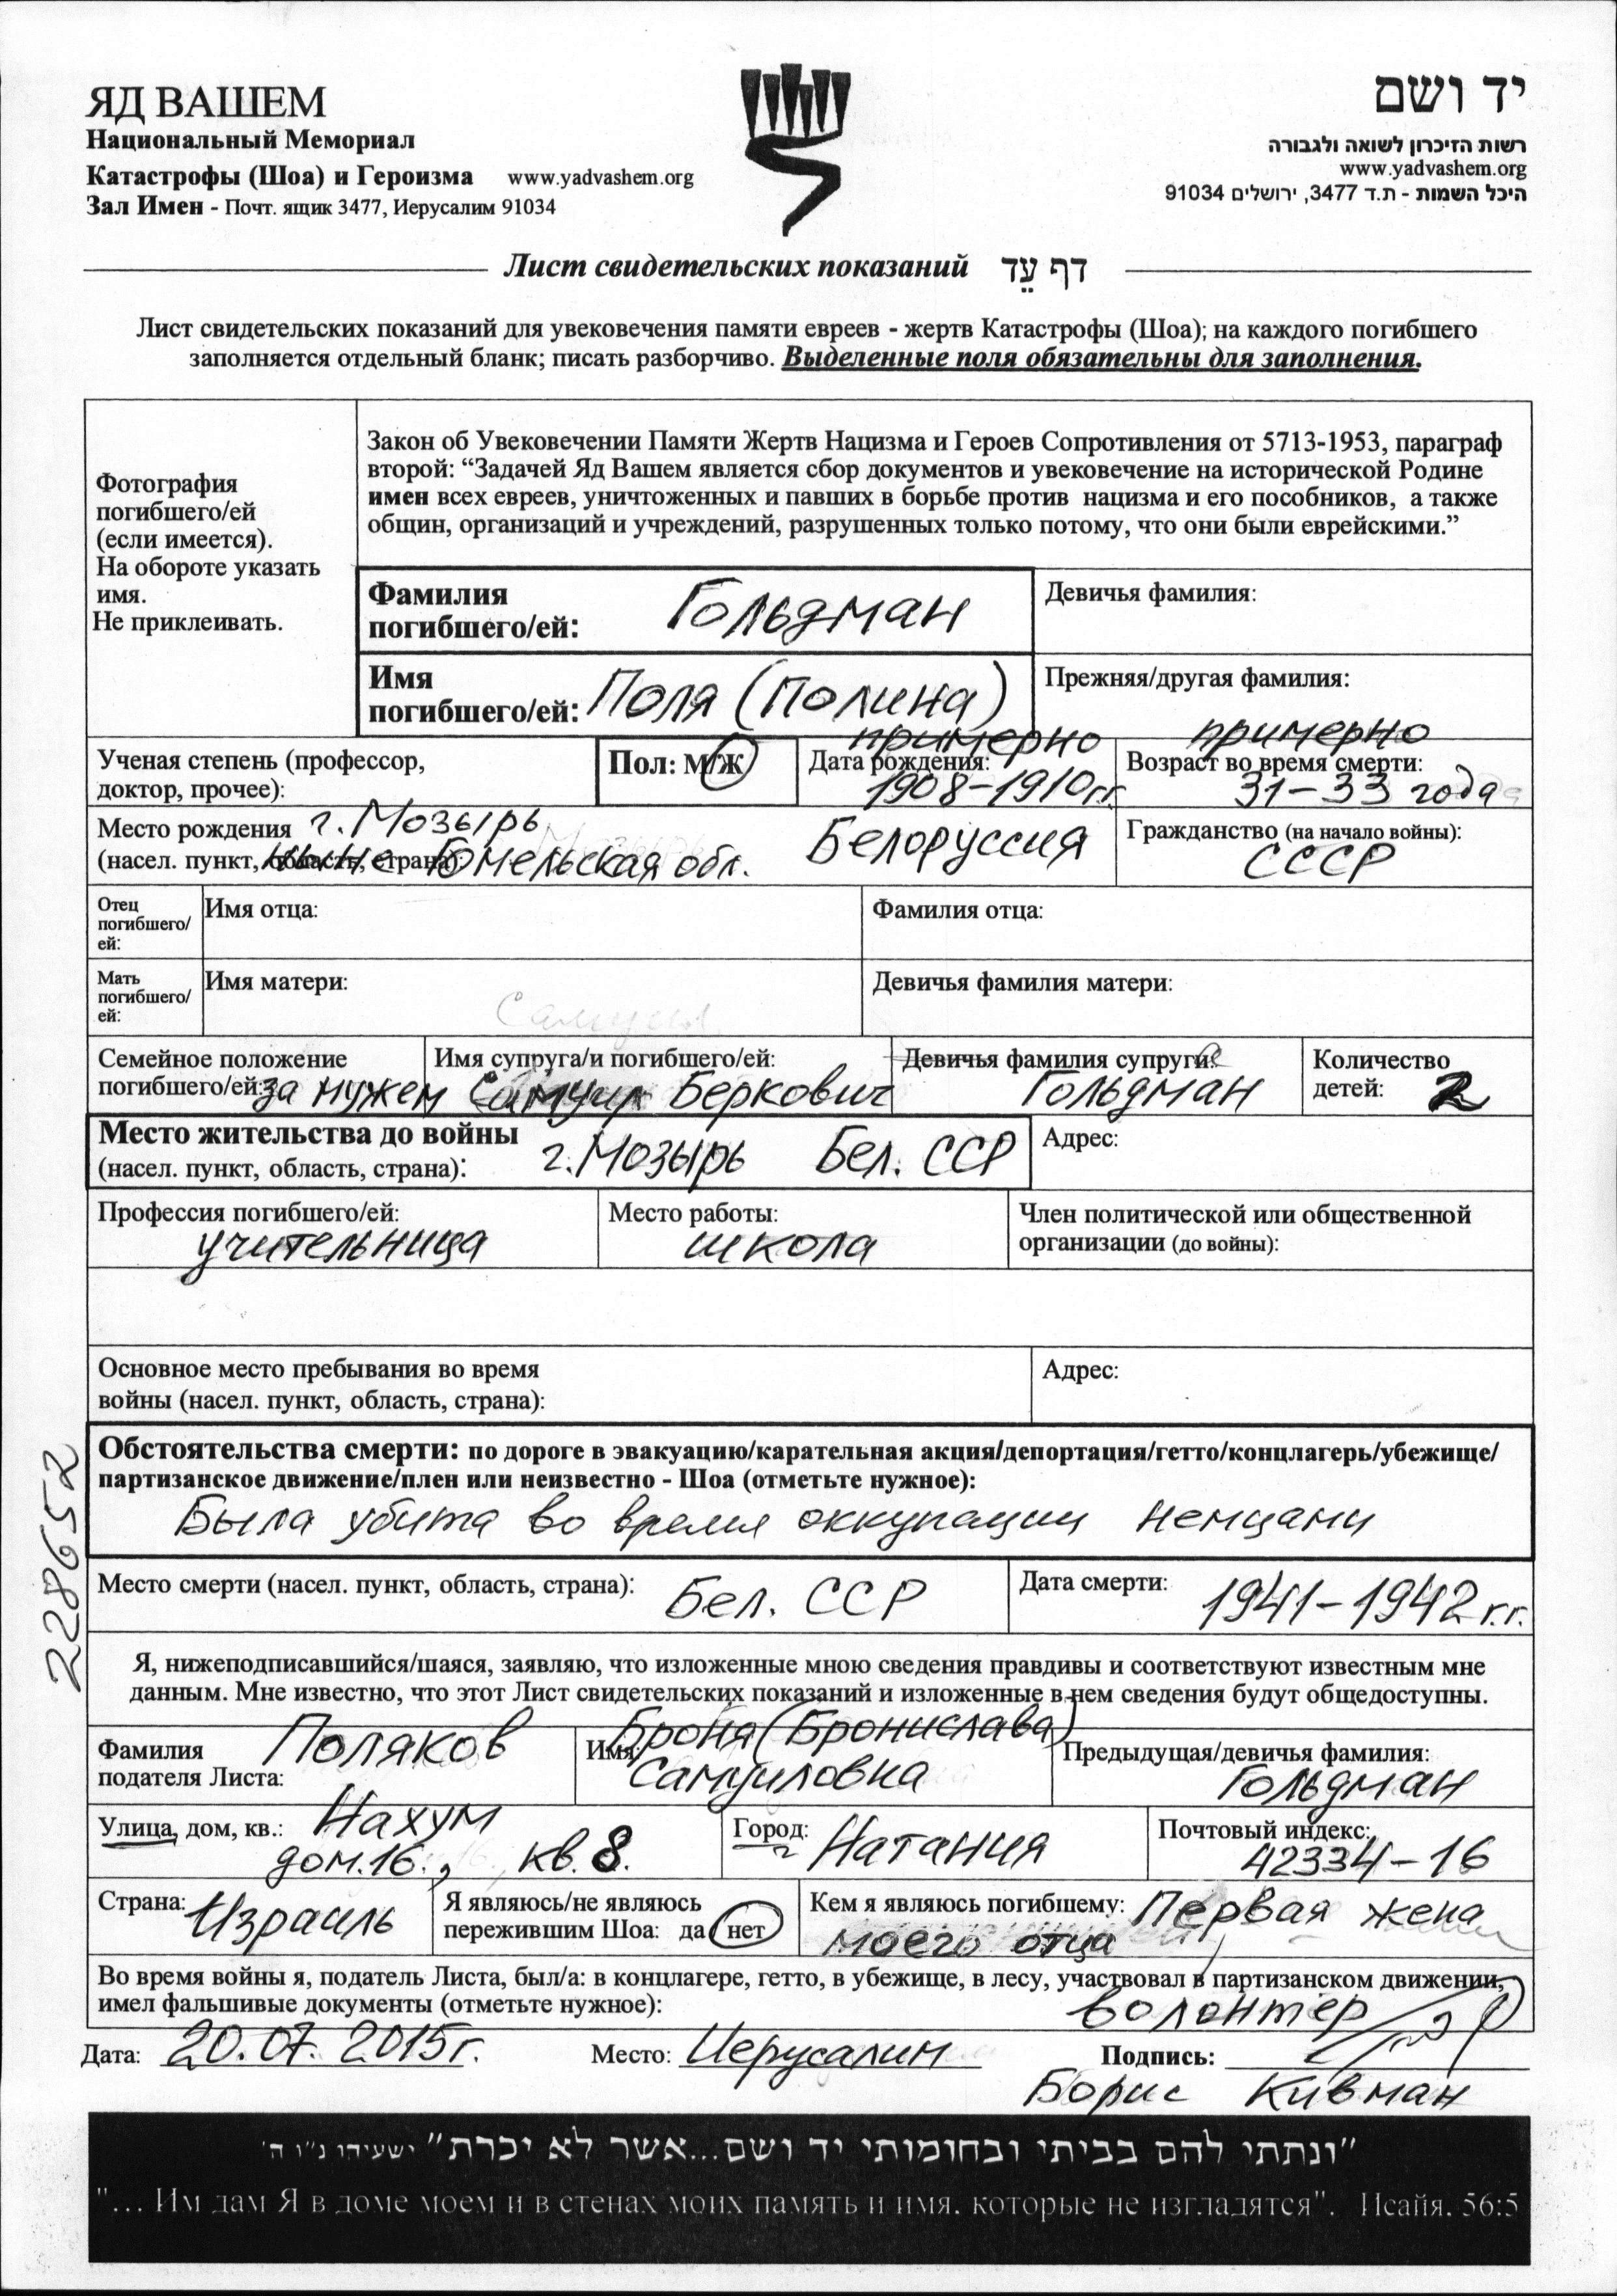 ЯД ВАШЕМ
Национальный Мемориал
Катастрофы (Шоа) и Героизма www.yadvashem.org
Зал Имен - Почт. ящик 3477, Иерусалим 91034
יד ושם
רשות הזיכרון לשואה ולגבורה
www.yadvashem.org
היכל השמות - ת.ד 3477, ירושלים 91034
Лист свидетельских показаний דף עֵד
Лист свидетельских показаний для увековечения памяти евреев - жертв Катастрофы (Шоа); на каждого погибшего
заполняется отдельный бланк; писать разборчиво. Выделенные поля обязательны для заполнения.
Фотография
погибшего/ей
(если имеется).
На обороте указать
имя.
Не приклеивать.
Закон об Увековечении Памяти Жертв Нацизма и Героев Сопротивления от 5713-1953, параграф
второй: “Задачей Яд Вашем является сбор документов и увековечение на исторической Родине
имен всех евреев, уничтоженных и павших в борьбе против нацизма и его пособников, а также
общин, организаций и учреждений, разрушенных только потому, что они были еврейскими.”
Фамилия
погибшего/ей: Гольдман
Девичья фамилия:
Имя
погибшего/ей: Поля (Полина)
Прежняя/другая фамилия:
Ученая степень (профессор,
доктор, прочее):
Пол: М/Ж
примерно
Дата рождения:
1908-1910гг.
примерно
Возраст во время смерти:
31-33 года
Место рождения г. Мозырь
(насел. пункт, область, страна): ныне Гомельская обл. Белоруссия
Гражданство (на начало войны):
СССР
Отец
погибшего/
ей:
Имя отца:
Фамилия отца:
Мать
погибшего/
ей:
Имя матери:
Девичья фамилия матери:
Самуил
Семейное положение
погибшего/ей: за мужем
Имя супруга/и погибшего/ей:
Самуил Беркович
Девичья фамилия супруги:
Гольдман
Количество
детей: 2
Место жительства до войны
(насел. пункт, область, страна): г. Мозырь Бел. ССР
Адрес:
Профессия погибшего/ей:
учительница
Место работы:
школа
Член политической или общественной
организации (до войны):
Основное место пребывания во время
войны (насел. пункт, область, страна):
Адрес:
Обстоятельства смерти: по дороге в эвакуацию/карательная акция/депортация/гетто/концлагерь/убежище/
партизанское движение/плен или неизвестно - Шоа (отметьте нужное):
Была убита во время оккупации немцами
228652
Место смерти (насел. пункт, область, страна): Бел. ССР
Дата смерти: 1941-1942г.г.
Я, нижеподписавшийся/шаяся, заявляю, что изложенные мною сведения правдивы и соответствуют известным мне
данным. Мне известно, что этот Лист свидетельских показаний и изложенные в нем сведения будут общедоступны.
Фамилия
подателя Листа: Поляков
Имя: Броня (Бронислава)
Самуиловна
Предыдущая/девичья фамилия:
Гольдман
Улица, дом, кв.: Нахум
дом.16., кв. 8.
Город: Натания
Почтовый индекс:
42334-16
Страна: Израиль
Я являюсь/не являюсь
пережившим Шоа: да/нет
Кем я являюсь погибшему: Первая жена
моего отца
Во время войны я, податель Листа, был/а: в концлагере, гетто, в убежище, в лесу, участвовал в партизанском движении,
имел фальшивые документы (отметьте нужное):
волонтер
Дата: 20.07.2015г. Место: Иерусалим Подпись:
Борис Кивман
"ונתתי להם בביתי ובחומותי יד ושם...אשר לא יכרת" ישעיהו נ"ו ה'
"... Им дам Я в доме моем и в стенах моих память и имя. которые не изгладятся". Исайя. 56:5